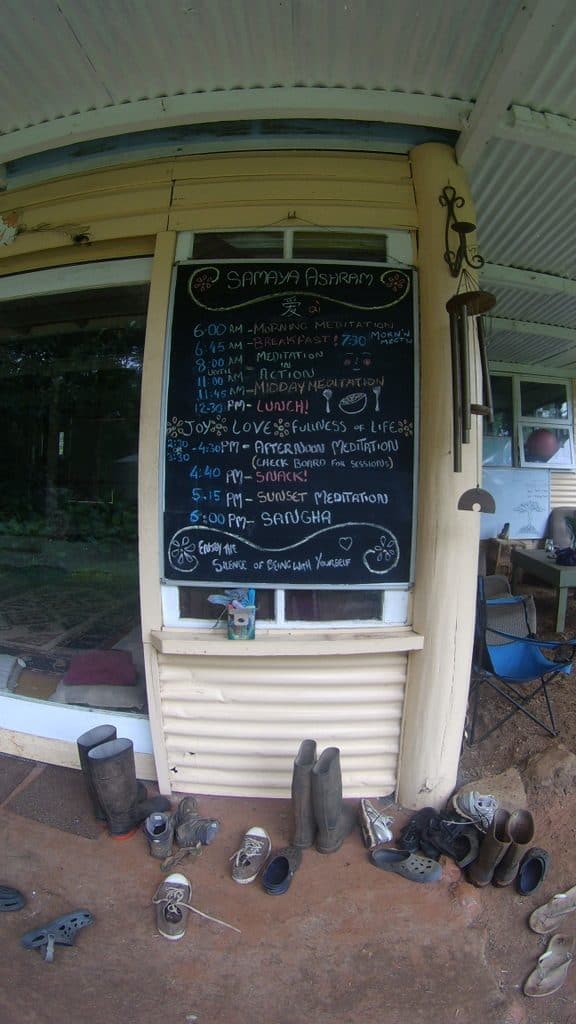 SAMAYA ASHRAM
爱 ài
6:00 AM - MORNING MEDITATION
6:45 AM - BREAKFAST! 7:30 MORN'N MEET'N
8:00 AM MEDITATION
UNTIL IN
11:00 AM - ACTION
11:45 AM - MIDDAY MEDITATION
12:30 PM - LUNCH!
JOY LOVE FULLNESS OF LIFE
2:30 - 4:30 PM - AFTERNOON MEDITATION
3:30 (CHECK BOARD FOR SESSIONS)
4:40 PM - SNACK!
5:15 PM - SUNSET MEDITATION
6:00 PM - SANGHA
ENJOY THE
SILENCE OF BEING WITH YOURSELF